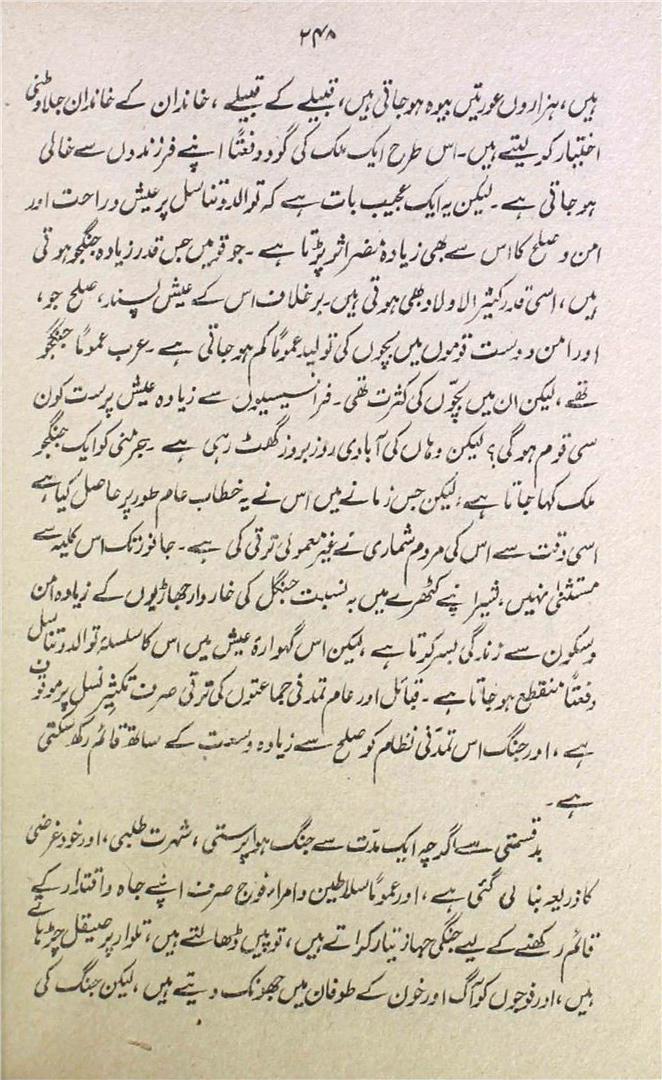 ۲۴۸
ہیں، ہزاروں عورتیں بیوہ ہوجاتی ہیں، قبیلے کے قبیلے، خاندان کے خاندان جلاوطنی
اختیار کرلیتے ہیں۔ اس طرح ایک ملک کی گود دفعتًا اپنے فرزندوں سے خالی
ہوجاتی ہے۔ لیکن یہ ایک عجیب بات ہے کہ توالد و تناسل پر عیش و راحت اور
امن و صلح کا اس سے بھی زیادہ مضر اثر پڑتا ہے۔ جو قومیں جس قدر زیادہ جنگجو ہوتی
ہیں، اسی قدر کثیر الاولاد بھی ہوتی ہیں۔ برخلاف اس کے عیش پسند، صلح جو،
اور امن دوست قوموں میں بچوں کی تولید عمومًا کم ہوجاتی ہے۔ عرب عمومًا جنگجو
تھے، لیکن ان میں بچّوں کی کثرت تھی۔ فرانسیسیوں سے زیادہ عیش پرست کون
سی قوم ہوگی؟ لیکن وہاں کی آبادی روز بروز گھٹ رہی ہے۔ جرمنی کو ایک جنگجو
ملک کہا جاتا ہے، لیکن جس زمانے میں اس نے یہ خطاب عام طور پر حاصل کیا ہے
اسی وقت سے اس کی مردم شماری نے غیر معمولی ترقی کی ہے۔ جانور تک اس کلیہ سے
مستثنیٰ نہیں، شیر اپنے کٹھرے میں بہ نسبت جنگل کی خاردار جھاڑیوں کے زیادہ امن
و سکون سے زندگی بسر کرتا ہے، لیکن اس گہوارۂ عیش میں اس کا سلسلۂ توالد و تناسل
دفعتًا منقطع ہوجاتا ہے۔ قبائل اور عام تمدنی جماعتوں کی ترقی صرف تکثیر نسل پر موقوف
ہے، اور جنگ اس تمدّنی نظام کو صلح سے زیادہ وسعت کے ساتھ قائم رکھ سکتی
ہے۔
بدقسمتی سے اگرچہ ایک مدّت سے جنگ ہوا پرستی، شہرت طلبی، اور خود غرضی
کا ذریعہ بنا لی گئی ہے، اور عمومًا سلاطین و امراء فوج صرف اپنے جاہ و اقتدار کے
قائم رکھنے کے لیے جنگی جہاز تیار کراتے ہیں، توپیں ڈھالتے ہیں، تلوار پر صیقل چڑہاتے
ہیں، اور فوجوں کو آگ اور خون کے طوفان میں جھونک دیتے ہیں، لیکن جنگ کی